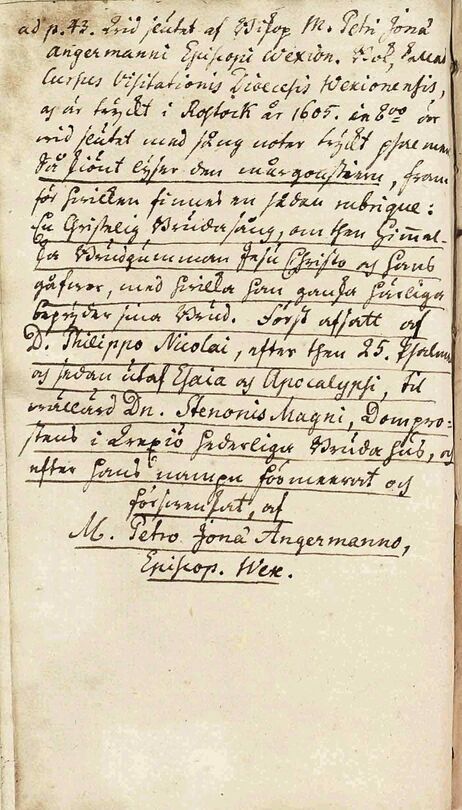 ad p. 43. Wid slutet af Biskop M. Petri Jonæ
Angermanni Episcopi Wexion. Bok, kallad
Cursus Visitationis Dioecesis Wexionensis,
som är tryckt i Rostock år 1605. in 8vo är
wid slutet med sång noter tryckt psalmen
Så skönt lyser den morgonstiern, fram
för hwilken finnes en sådan rubrique:
En Christelig Brudasång, om then Himmel-
ska Brudgumman Jesu Christo och hans
gåfwor, med hwilka han ganska härliga
bepryder sina Brud. Först afsatt af
D. Philippo Nicolai, efter then 25. Psalm
och sedan utaf Esaia och Apocalypsi, til
wällärd Dn. Stenonis Magni, Dompro-
stens i Wexiö hederliga Brudahus, och
efter hans nampn förmeerat och
förswenskat, af
M. Petro Jonæ Angermanno,
Episcop. Wex.